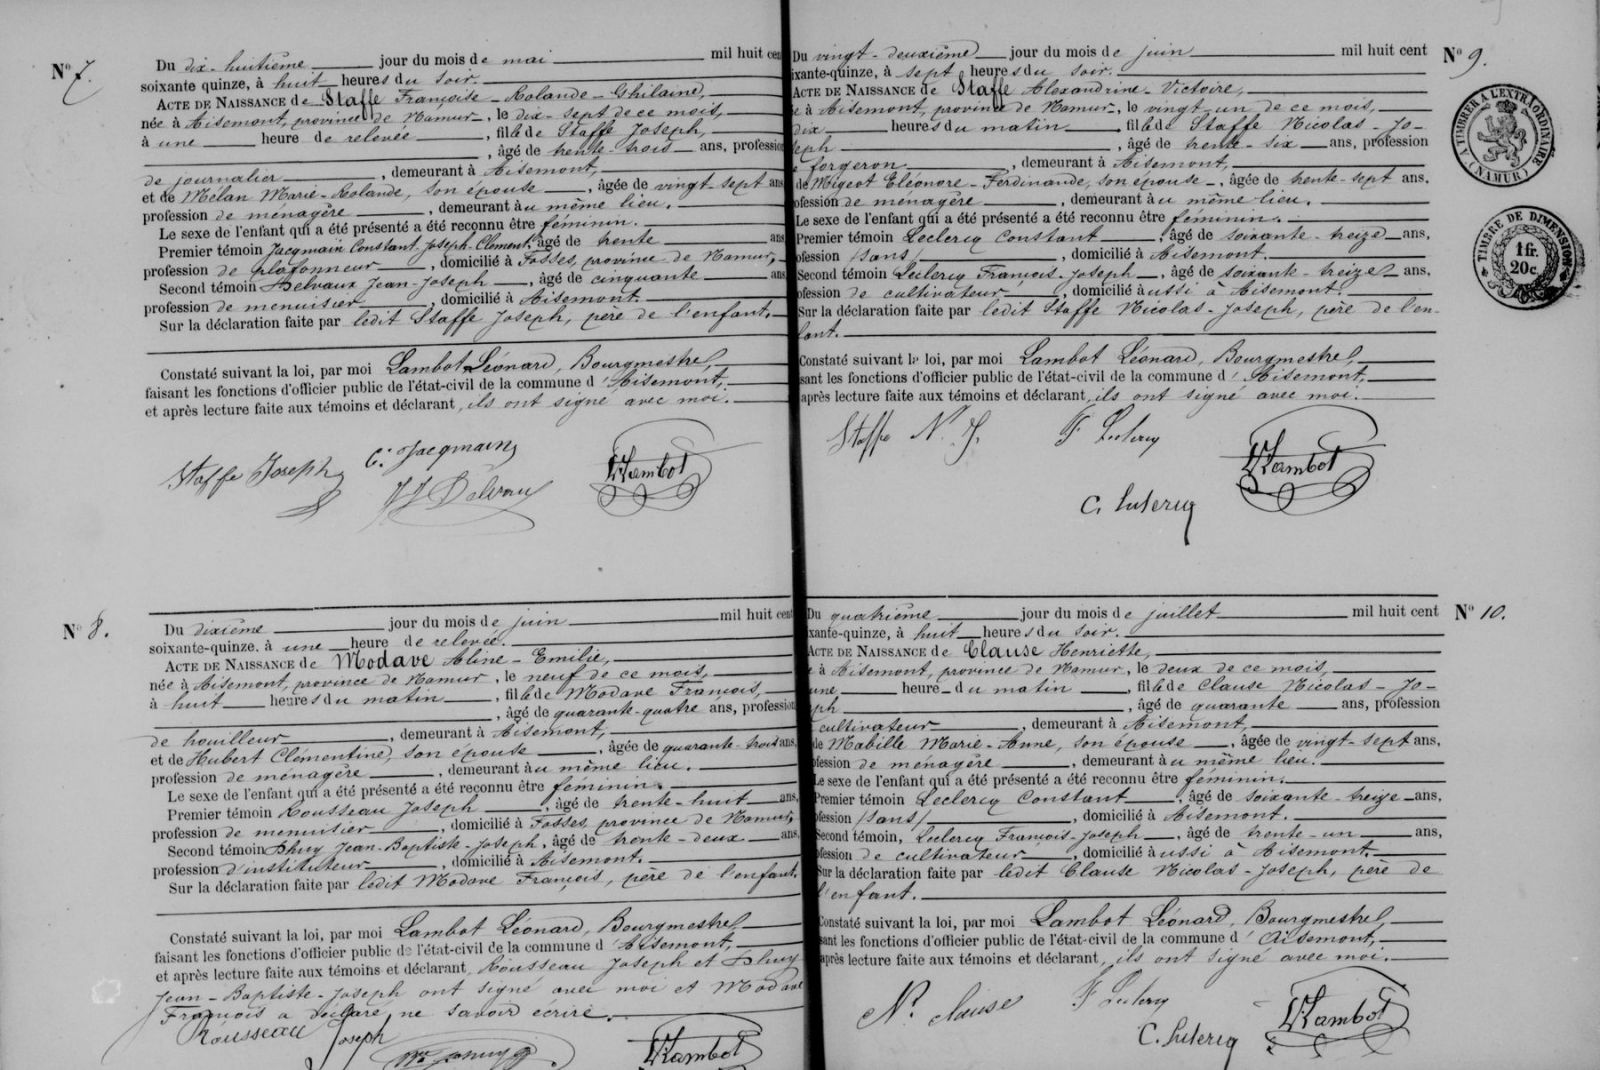 N° 7.
Du dix-huitième jour du mois de mai mil huit cen
soixante quinze, à huit heures du soir.
ACTE DE NAISSANCE de Staffe Françoise-Rolande-Ghilaine,
née à Aisemont, province de Namur, le dix-sept de ce mois,
à une heure de relevée, fille de Staffe Joseph,
, âgé de trente-trois ans, profession
de journalier, demeurant à Aisemont,
et de Mélan Marie-Rolande, son épouse, âgée de vingt-sept ans
profession de ménagère, demeurant au même lieu.
Le sexe de l'enfant qui a été présenté a été reconnu être féminin.
Premier témoin Jacqmain Constant-Joseph-Clément, âgé de trente ans
profession de plafonneur, domicilié à Fosses, province de Namur,
Second témoin Delvaux Jean-Joseph, âgé de cinquante ans
profession de menuisier, domicilié à Aisemont.
Sur la déclaration faite par ledit Staffe Joseph, père de l'enfant.
Constaté suivant la loi, par moi Lambot Léonard, Bourgmestre,
faisant les fonctions d'officier public de l'état-civil de la commune d'Aisemont,
et après lecture faite aux témoins et déclarant, ils ont signé avec moi.
Staffe Joseph C. Jacqmain
JJ Delvaux Lambot
N° 8.
Du dixième jour du mois de juin mil huit cent
soixante-quinze, à une heure de relevée.
ACTE DE NAISSANCE de Modave Aline-Emilie,
née à Aisemont, province de Namur, le neuf de ce mois,
à huit heures du matin, fille de Modave François,
, âgé de quarante-quatre ans, profession
de houilleur, demeurant à Aisemont,
et de Hubert Clémentine, son épouse, âgée de quarante-trois ans,
profession de ménagère, demeurant au même lieu.
Le sexe de l'enfant qui a été présenté a été reconnu être féminin.
Premier témoin Rousseau Joseph, âgé de trente-huit ans,
profession de menuisier, domicilié à Fosses, province de Namur,
Second témoin Dhuy Jean-Baptiste-Joseph, âgé de trente-deux ans
profession d'instituteur, domicilié à Aisemont.
Sur la déclaration faite par ledit Modave François, père de l'enfant.
Constaté suivant la loi, par moi Lambot Léonard, Bourgmestre,
faisant les fonctions d'officier public de l'état-civil de la commune d'Aisemont,
et après lecture faite aux témoins et déclarant, Rousseau Joseph et Dhuy
Jean-Baptiste-Joseph ont signé avec moi et Modave
François a déclaré ne savoir écrire.
Rousseau Joseph
Lambot
N° 9.
Du vingt-deuxième jour du mois de juin mil huit cent
ixante-quinze, à sept heures du soir.
ACTE DE NAISSANCE de Staffe Alexandrine-Victoire,
e à Aisemont, province de Namur, le vingt-un de ce mois,
dix heures du matin, fille de Staffe Nicolas-Jo-
seph, âgé de trente-six ans, profession
e forgeron, demeurant à Aisemont,
de Migeot Eléonore-Ferdinande, son épouse, âgée de trente-sept ans,
ofession de ménagère, demeurant au même lieu.
Le sexe de l'enfant qui a été présenté a été reconnu être féminin.
Premier témoin Leclercq Constant, âgé de soixante-treize ans,
ofession /sans/, domicilié à Aisemont.
Second témoin Leclercq François-Joseph, âgé de soixante-treize ans,
ofession de cultivateur, domicilié aussi à Aisemont.
Sur la déclaration faite par ledit Staffe Nicolas-Joseph, père de l'en-
fant.
Constaté suivant la loi, par moi Lambot Léonard, Bourgmestre,
sant les fonctions d'officier public de l'état-civil de la commune d'Aisemont,
après lecture faite aux témoins et déclarant, ils ont signé avec moi.
Staffe N. J. F Leclercq
Lambot
C. Leclercq
A TIMBRER A L'EXTRAORDINAIRE
(NAMUR)
TIMBRE DE DIMENSION
1 fr.
20 c.
N° 10.
Du quatrième jour du mois de juillet mil huit cent
xante-quinze, à huit heures du soir.
ACTE DE NAISSANCE de Clause Henriette,
e à Aisemont, province de Namur, le deux de ce mois,
une heure du matin, fille de Clause Nicolas-Jo-
ph, âgé de quarante ans, profession
cultivateur, demeurant à Aisemont,
de Mabille Marie-Anne, son épouse, âgée de vingt-sept ans,
ofession de ménagère, demeurant au même lieu.
Le sexe de l'enfant qui a été présenté a été reconnu être féminin.
Premier témoin Leclercq Constant, âgé de soixante-treize ans,
ofession /sans/, domicilié à Aisemont.
Second témoin, Leclercq François-Joseph, âgé de trente-un ans,
ofession de cultivateur, domicilié aussi à Aisemont.
Sur la déclaration faite par ledit Clause Nicolas-Joseph, père de
l'enfant.
Constaté suivant la loi, par moi Lambot Léonard, Bourgmestre,
sant les fonctions d'officier public de l'état-civil de la commune d'Aisemont,
après lecture faite aux témoins et déclarant, ils ont signé avec moi.
N. Clause F Leclercq
Lambot
C. Leclercq